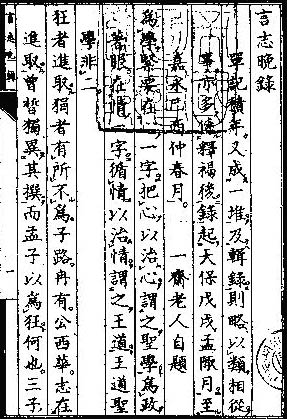 言志晚錄
單記積年。又成一堆。及輯錄。則略以類相從。
事亦多係釋褐後。錄起天保戊戌孟陬月。至
嘉永己酉仲春月。一齋老人自題
爲學緊要在心一字。把心以治心。謂之聖學。爲政
著眼在情一字。循情以治情。謂之王道。王道聖
學非二。
狂者進取。狷者有所不爲。子路冉有。公西華。志在
進取。曾皙獨異其撰。而孟子以爲狂。何也。三子
言志晚錄